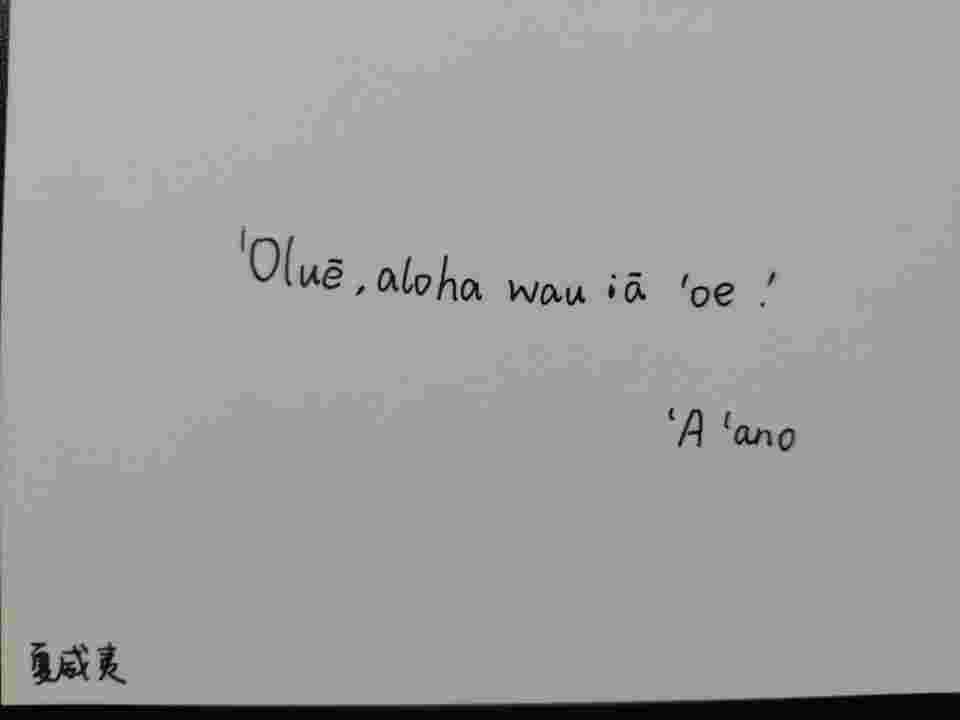 ʻOluē, aloha wau iā ʻoe !
ʻA ʻano
夏威夷